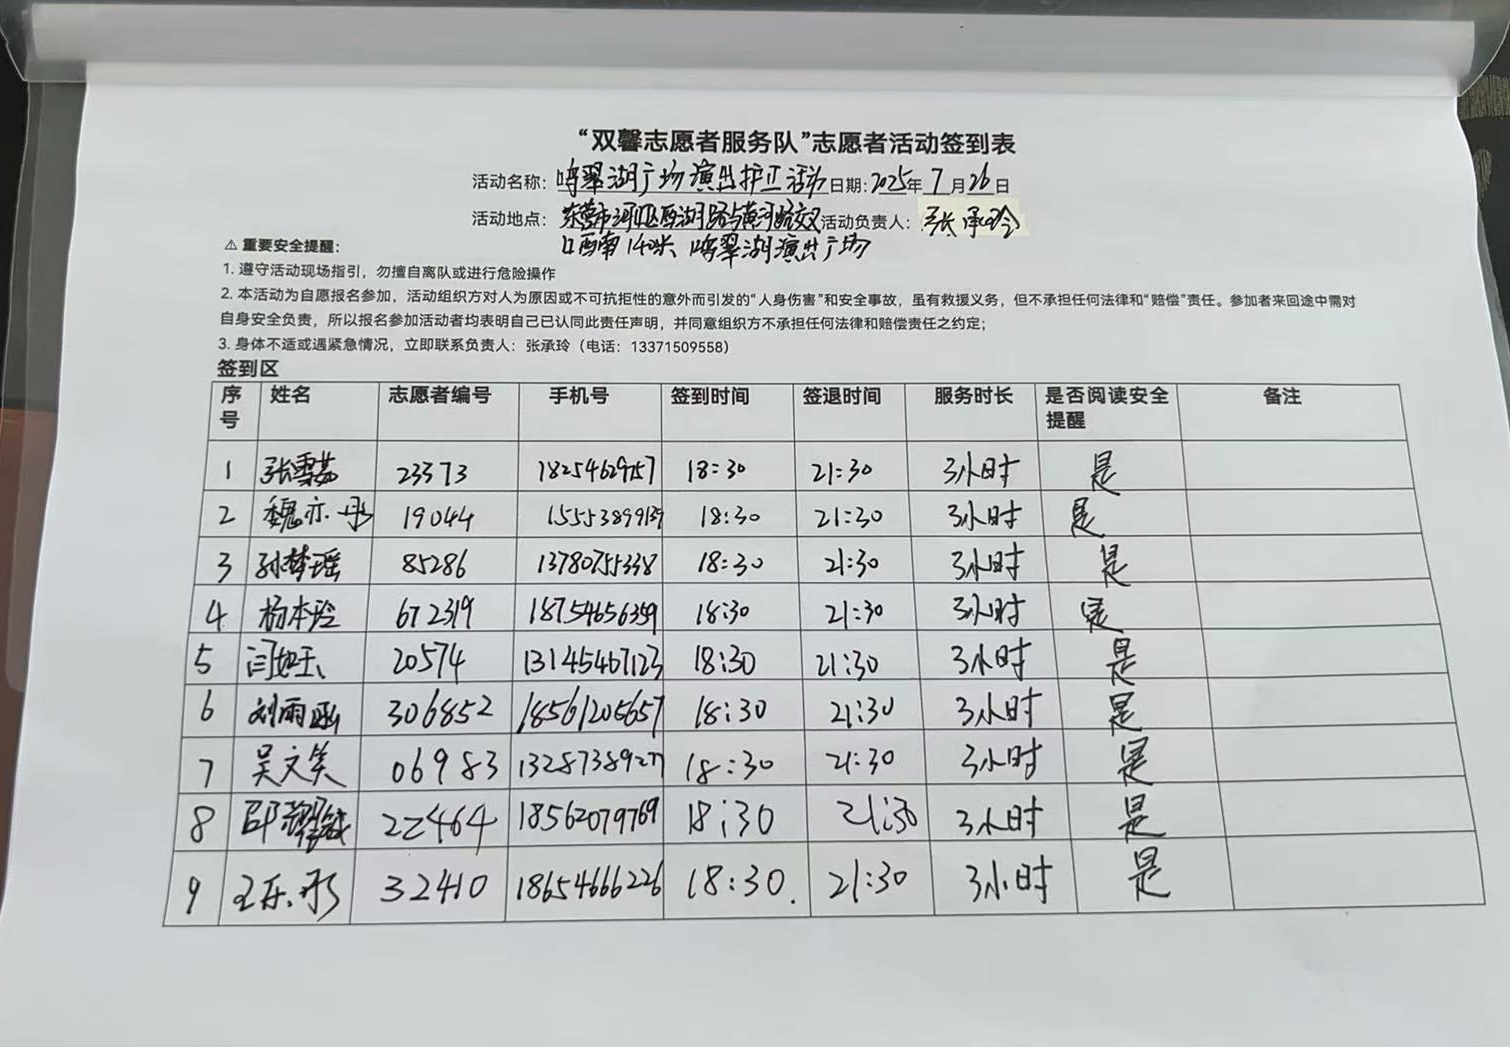 “双馨志愿者服务队”志愿者活动签到表
活动名称：鸣翠湖广场演出护卫活动 日期：2025年7月26日
活动地点：东营市河口区西湖路与黄河路交叉 活动负责人：张承玲
口西南140米 鸣翠湖演出广场
⚠ 重要安全提醒：
1. 遵守活动现场指引，勿擅自离队或进行危险操作
2. 本活动为自愿报名参加，活动组织方对人为原因或不可抗拒性的意外而引发的“人身伤害”和安全事故，虽有救援义务，但不承担任何法律和“赔偿”责任。参加者来回途中需对
自身安全负责，所以报名参加活动者均表明自己已认同此责任声明，并同意组织方不承担任何法律和赔偿责任之约定；
3. 身体不适或遇紧急情况，立即联系负责人：张承玲（电话：13371509558）
签到区
序号 姓名 志愿者编号 手机号 签到时间 签退时间 服务时长 是否阅读安全提醒 备注
1 张雪茹 23373 18254629157 18:30 21:30 3小时 是
2 魏亦彤 19044 15553899139 18:30 21:30 3小时 是
3 孙梦瑶 85286 13780755338 18:30 21:30 3小时 是
4 杨本玲 672319 18754656359 18:30 21:30 3小时 是
5 闫 20574 13145467123 18:30 21:30 3小时 是
6 刘雨函 306852 18561205657 18:30 21:30 3小时 是
7 吴文美 06983 13287389277 18:30 21:30 3小时 是
8 邱 22464 18562079769 18:30 21:30 3小时 是
9 王乐彤 32410 18654666226 18:30. 21:30 3小时 是